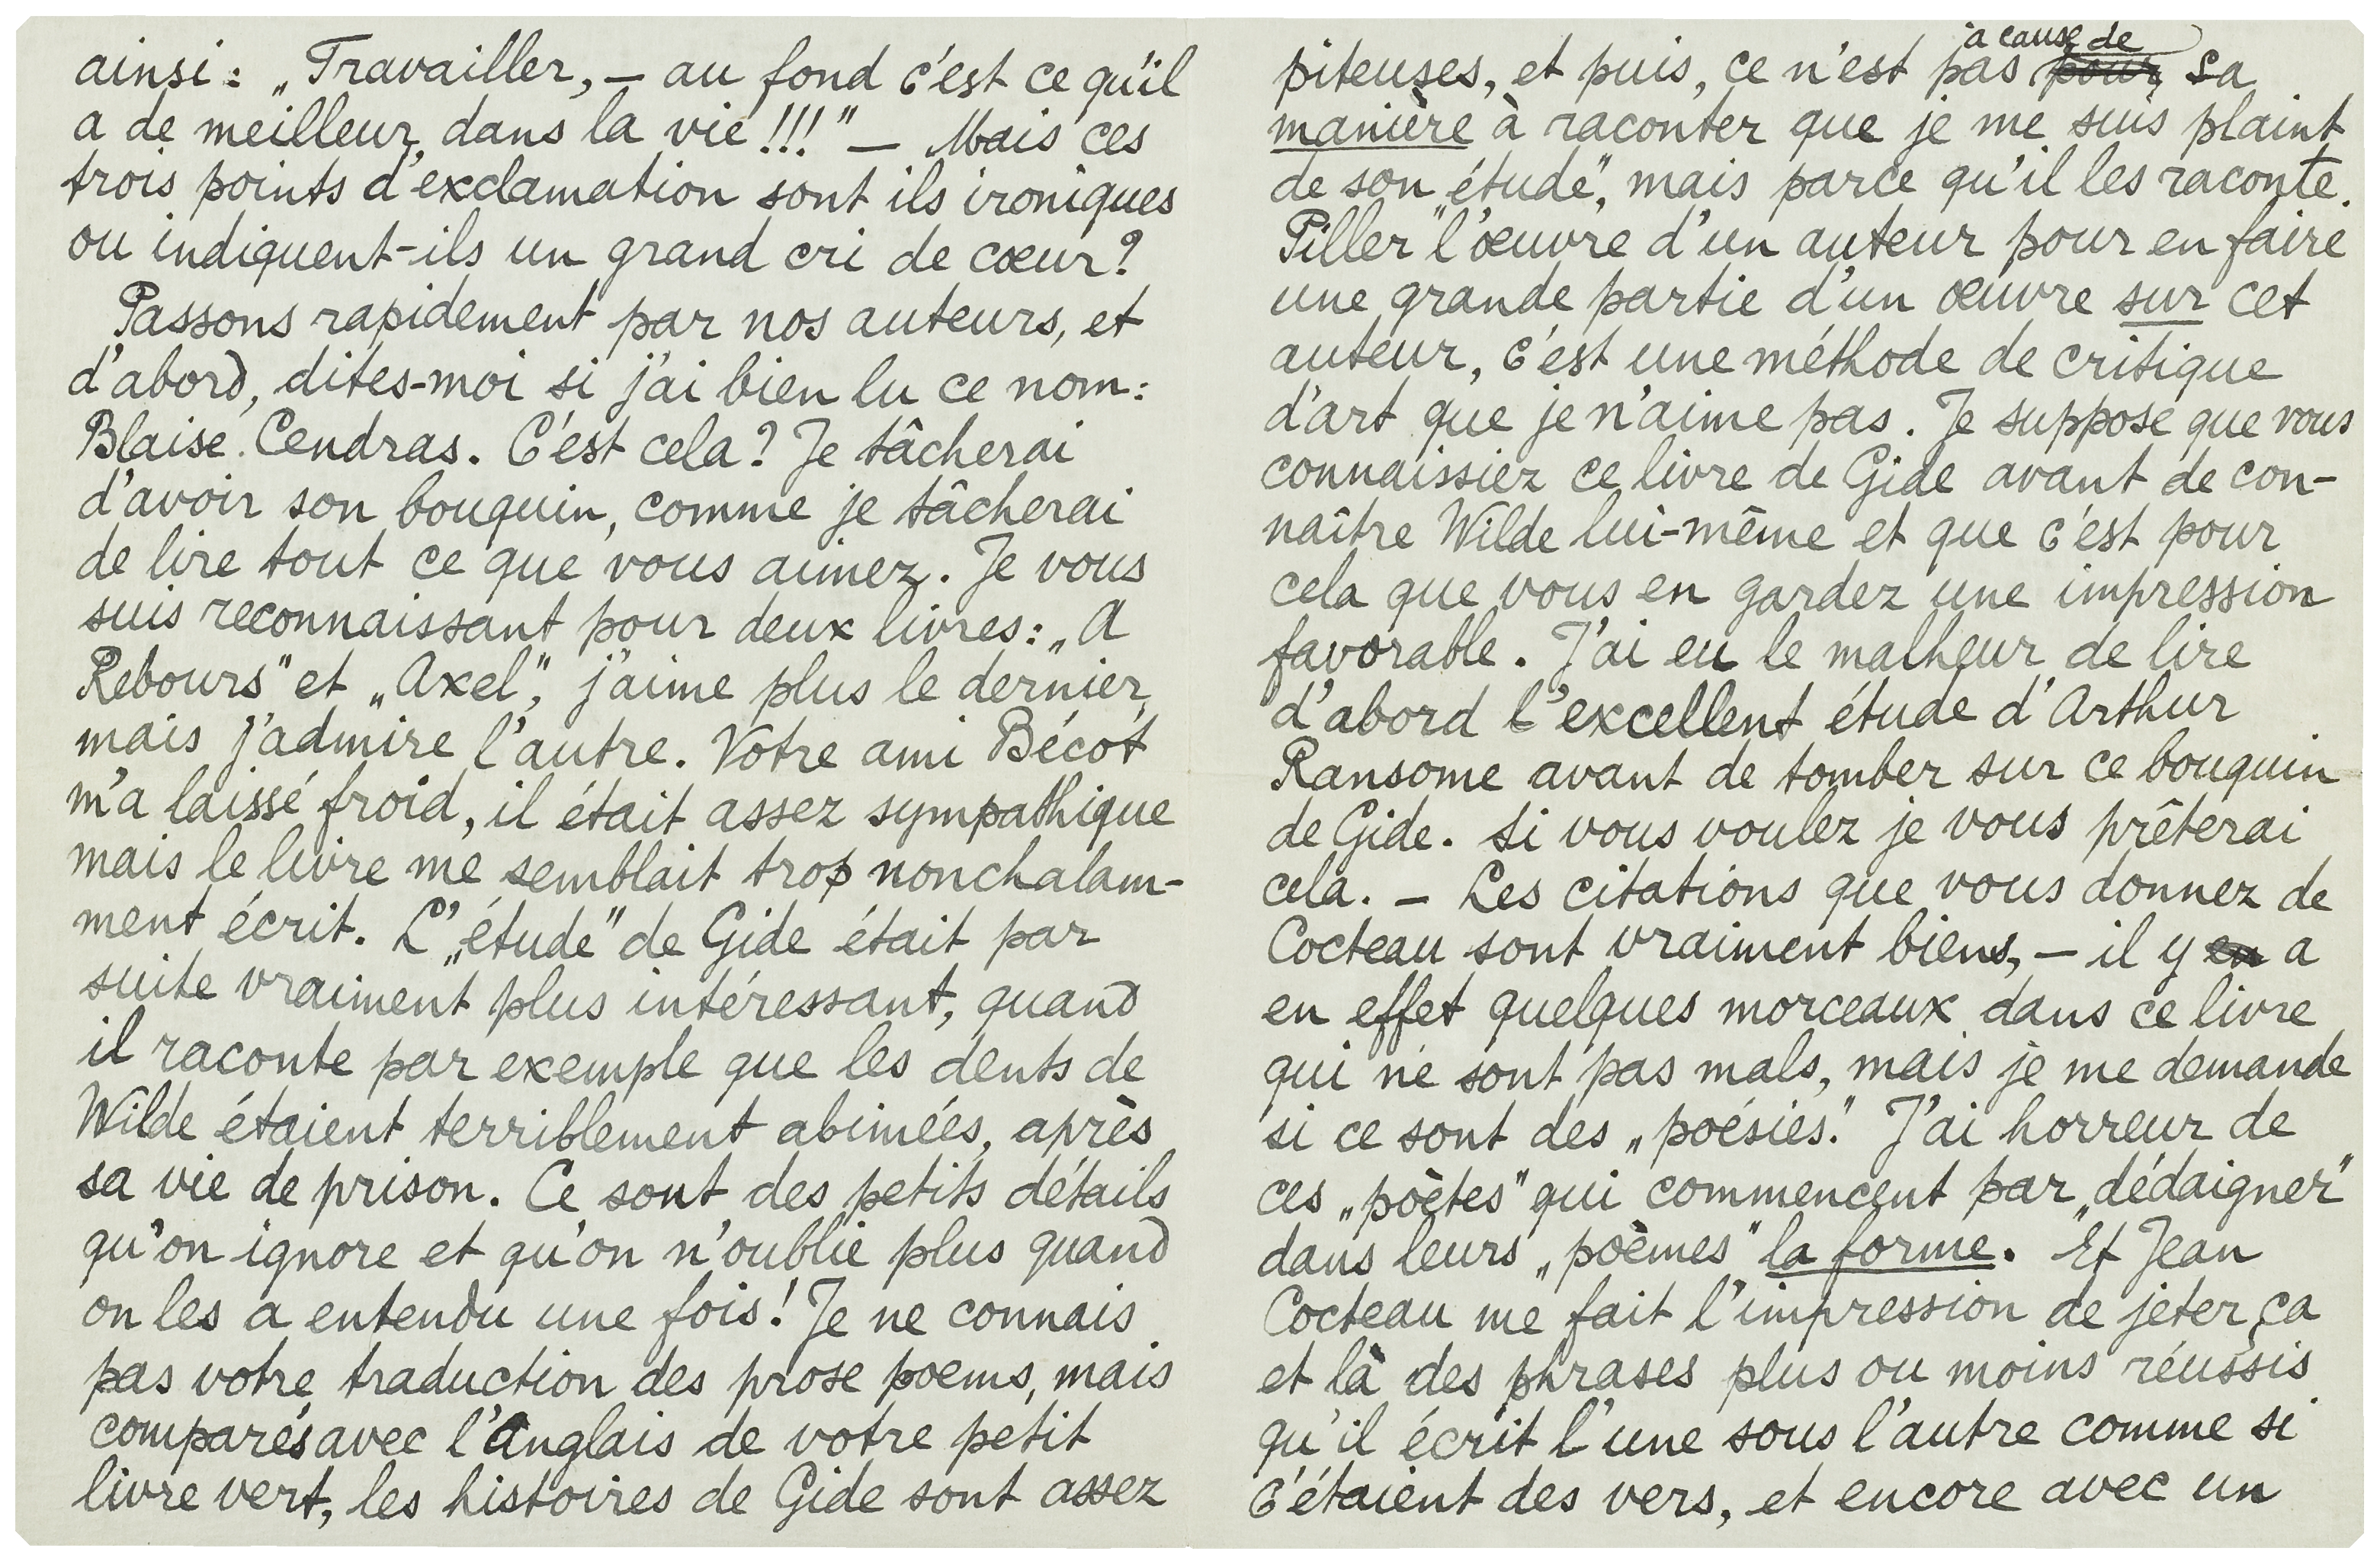 ainsi: „Travailler, — au fond c'est ce qu'il
a de meilleur dans la vie!!!" — Mais ces
trois points d'exclamation sont ils ironiques
ou indiquent-ils un grand cri de cœur?
Passons rapidement par nos auteurs, et
d'abord, dites-moi si j'ai bien lu ce nom:
Blaise Cendras. C'est cela? Je tâcherai
d'avoir son bouquin, comme je tâcherai
de lire tout ce que vous aimez. Je vous
suis reconnaissant pour deux livres: „A
Rebours" et „Axel", j'aime plus le dernier,
mais j'admire l'autre. Votre ami Bécot
m'a laissé froid, il était assez sympathique
mais le livre me semblait trop nonchalam-
ment écrit. L'„étude" de Gide était par
suite vraiment plus intéressant, quand
il raconte par exemple que les dents de
Wilde étaient terriblement abimées, après
sa vie de prison. Ce sont des petits détails
qu'on ignore et qu'on n'oublie plus quand
on les a entendu une fois! Je ne connais
pas votre traduction des prose poems, mais
comparés avec l'Anglais de votre petit
livre vert, les histoires de Gide sont assez
piteuses, et puis, ce n'est pas pour à cause de sa
manière à raconter que je me suis plaint
de son „étude", mais parce qu'il les raconte.
Piller l'œuvre d'un auteur pour en faire
une grande partie d'un œuvre sur cet
auteur, c'est une méthode de critique
d'art que je n'aime pas. Je suppose que vous
connaissiez ce livre de Gide avant de con-
naître Wilde lui-même et que c'est pour
cela que vous en gardez une impression
favorable. J'ai eu le malheur de lire
d'abord l'excellent étude d'Arthur
Ransome avant de tomber sur ce bouquin
de Gide. Si vous voulez je vous prêterai
cela. — Les citations que vous donnez de
Cocteau sont vraiment biens, — il y en a
en effet quelques morceaux dans ce livre
qui ne sont pas mals, mais je me demande
si ce sont des „poésies." J'ai horreur de
ces „poètes" qui commencent par „dédaigner"
dans leurs „poèmes" la forme. Et Jean
Cocteau me fait l'impression de jeter ça
et là des phrases plus ou moins réussis
qu'il écrit l'une sous l'autre comme si
c'étaient des vers, et encore avec un